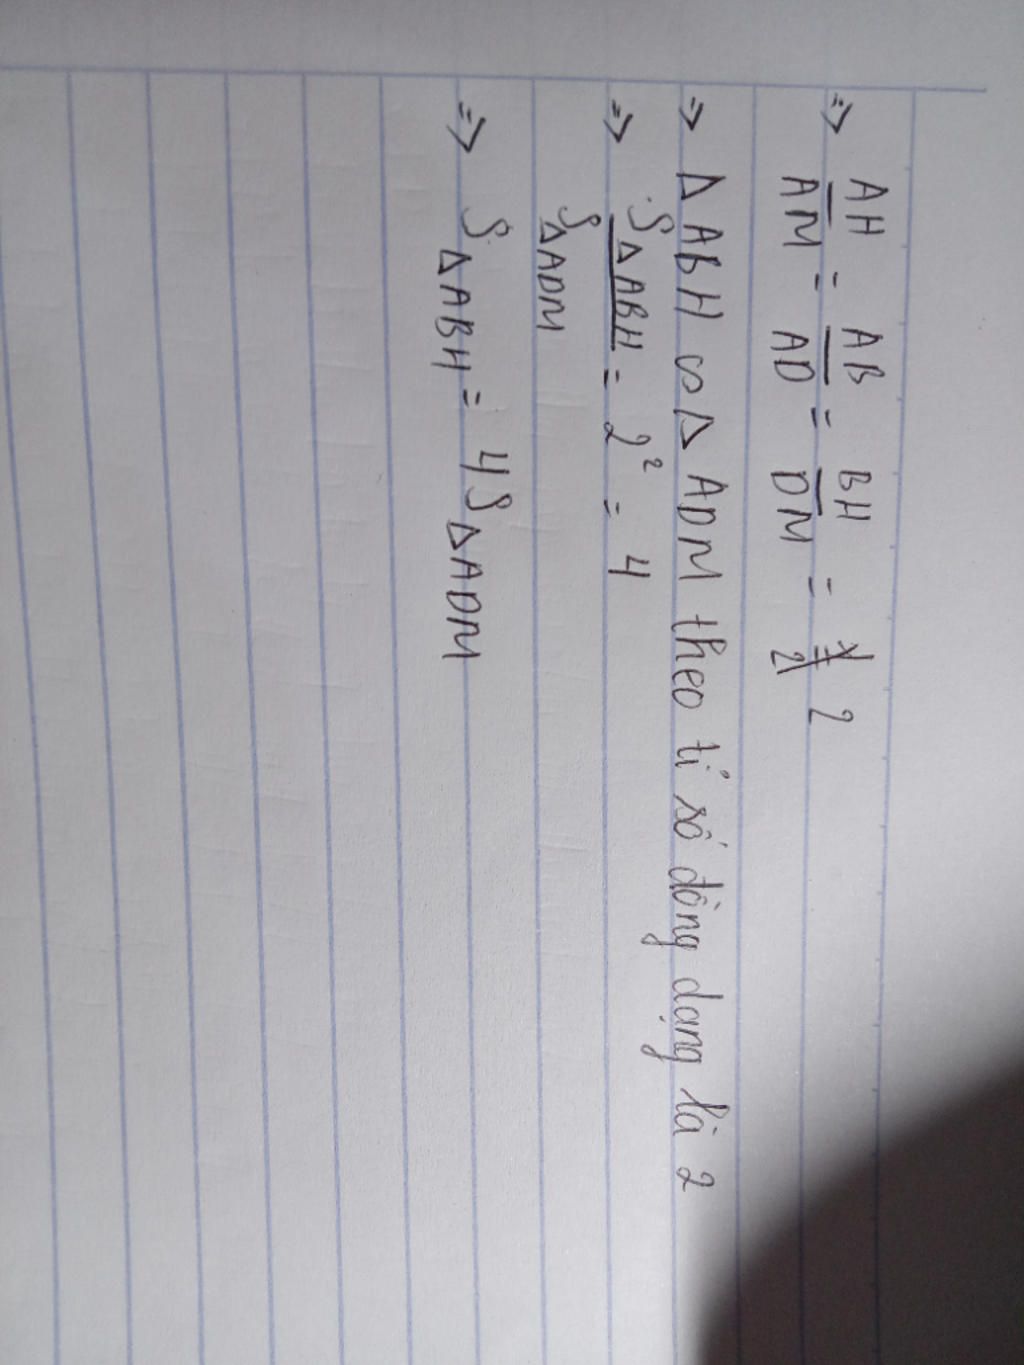 => AH/AM = AB/AD = BH/DM = 2
=> Δ ABH ∽ Δ ADM theo tỉ số đồng dạng là 2
=> SΔABH/SΔADM = 2² = 4
=> SΔABH = 4SΔADM